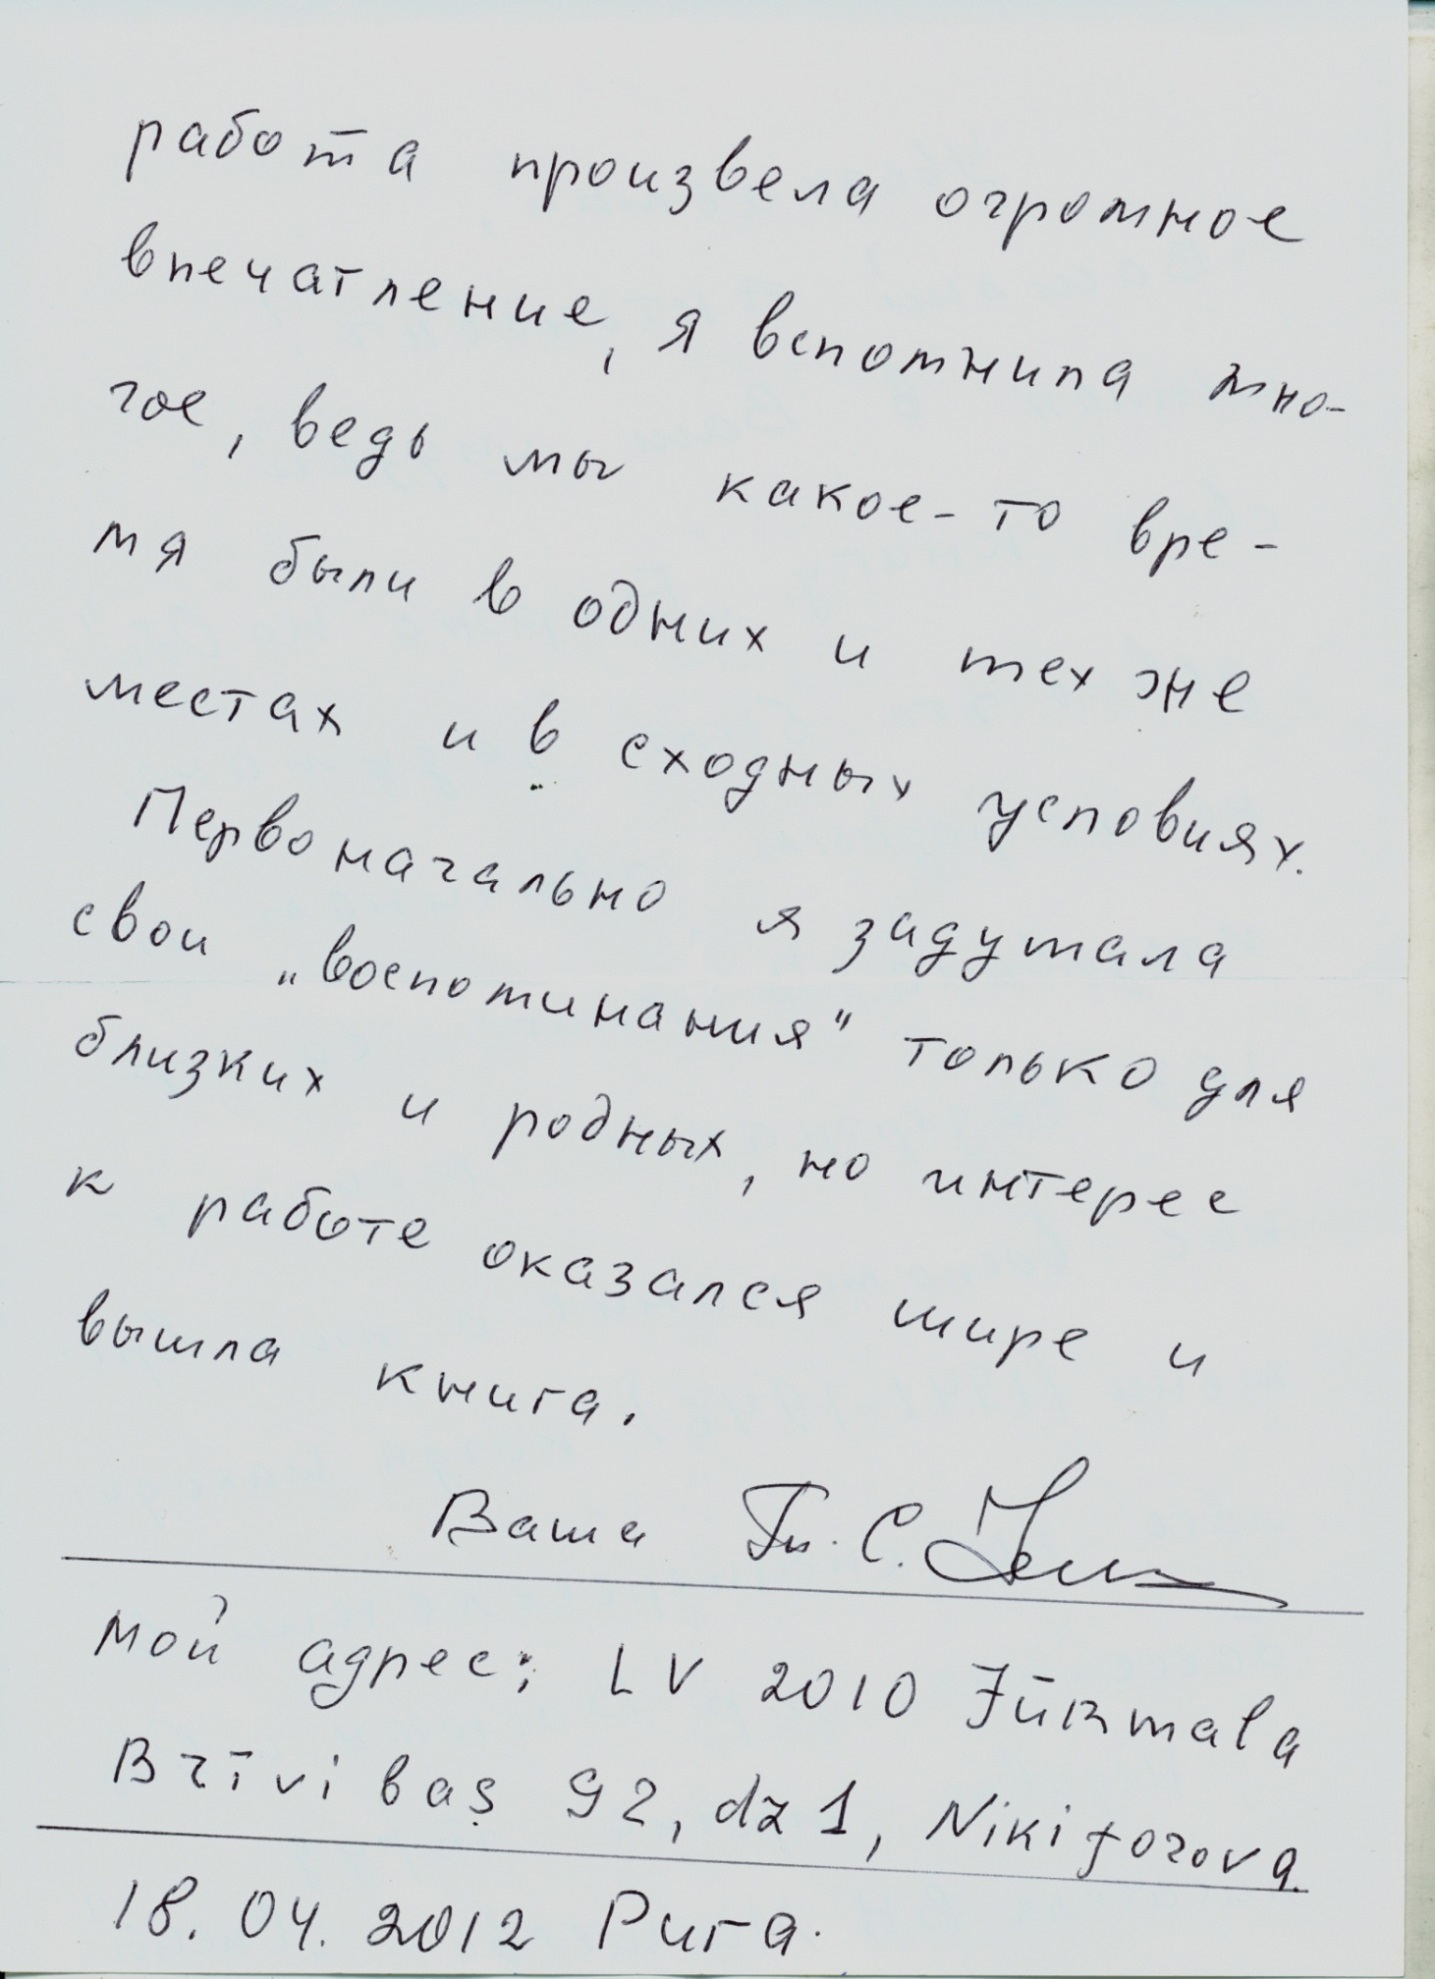 работа произвела огромное
впечатление, я вспомнила мно-
гое, ведь мы какое-то вре-
мя были в одних и тех же
местах и в сходных условиях.
Первоначально я задумала
свои „воспоминания" только для
близких и родных, но интерес
к работе оказался шире и
вышла книга.
Ваша С.
Мой адрес: LV 2010 Jūrmala
Brīvibaş 92, dz 1, Nikiforova.
18.04.2012 Рига.